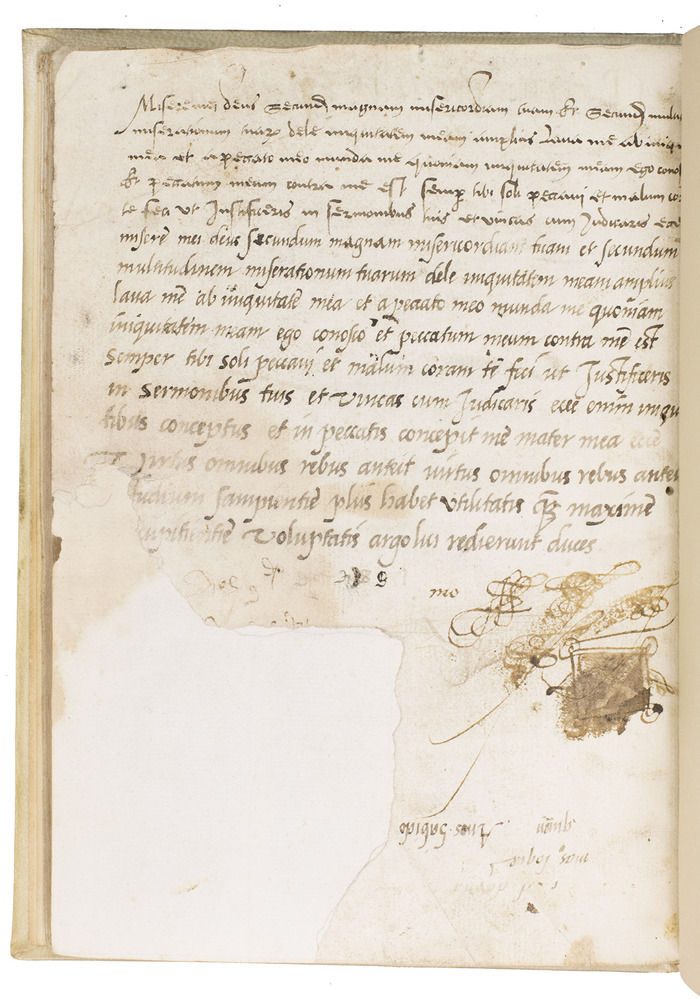 Miseremei deus Secund magnam misericordiam tuam Et Secund
miserationum tuarx dele iniquitatem meam amplius Lava me ab
mea et a peccato meo munda me quoniam iniquitatem meam ego
Et peccatum meum contra me est Semp tibi soli peccavi et malum
te feci Ut Justificeris in Sermonibus tuis et vincas cum Judicaris
misere mei deus secundum magnam misericordiam tuam et secundum
multitudinem miserationum tuarum dele iniquitatem meam amplius
lava me ab iniquitate mea et a peccato meo munda me quoniam
iniquitatem meam ego conosco et peccatum meum contra me est
Semper tibi soli peccavi et malum coram te feci ut Justificeris
in Sermonibus tuis et Vincas cum Judicaris ecce enim iniqui
tibus conceptus et in peccatis concepit me mater mea ecce
Virtus omnibus rebus anteit virtus omnibus rebus antei
studium sampientie plus habet utilitatis q3 maxime
cupitientie Voluptatis argolui redierunt duces
mo